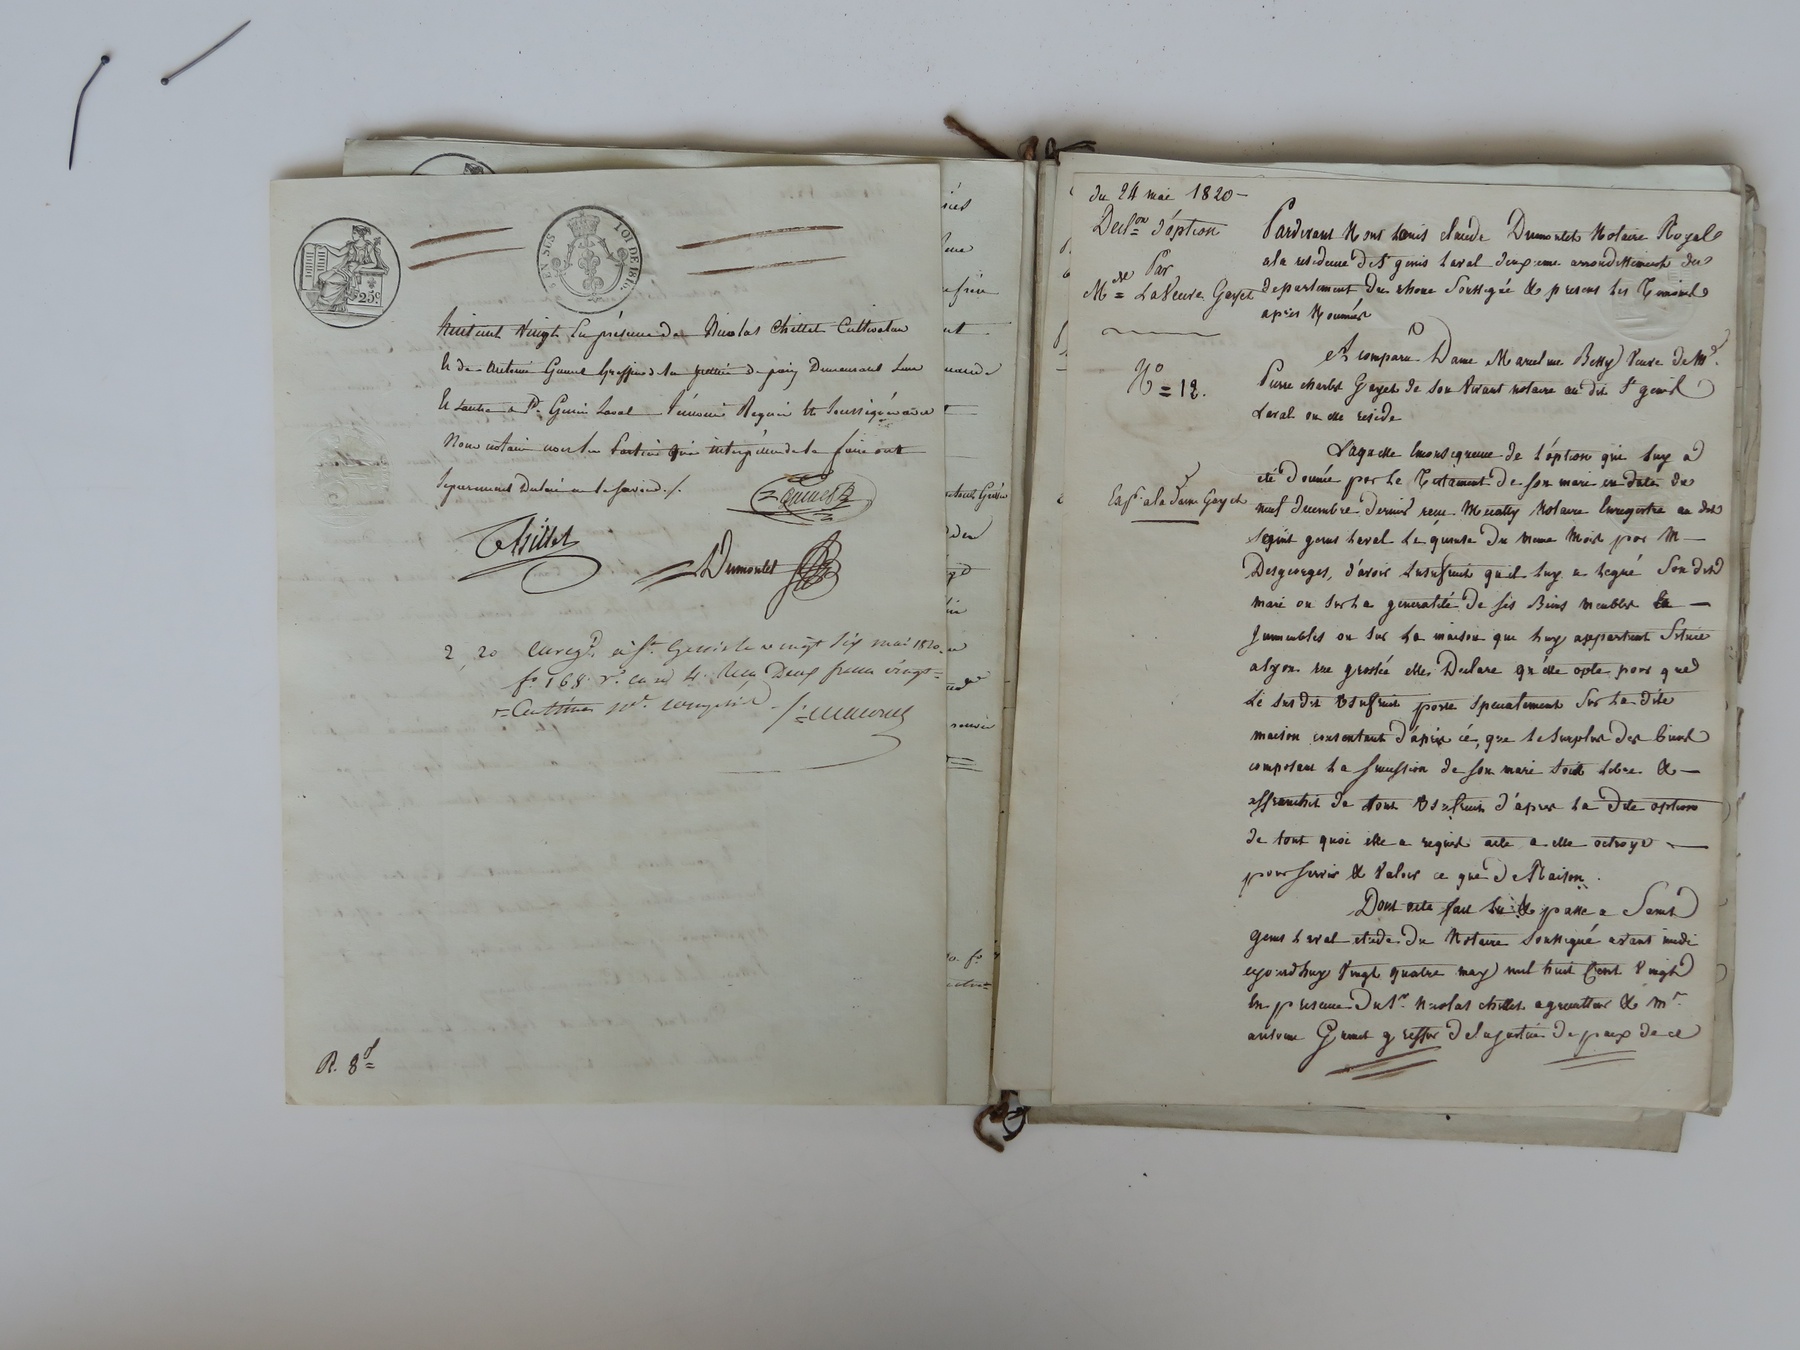 EN SUS LOI DE 1816.
25c
huit cent Vingt En présence de Nicolas Chillet Cultivateur
Et de Antoine Gamet Greffier de la justice de paix Demeurant L'un
Et L'autre à St. Genis Laval Témoins Requis Et Soussignés avec
Nous notaire
séparément Déclaré ne le savoir ./.
Gamet
Chillet
Dumontet
2, 20 Enregé. à St. Genis le vingt six mai 1820.
fo. 168 ro. case 4. Reçu Deux francs vingt=
=Centimes
R. 8
du 24 mai 1820 -
Declon d'óption
Par
Mde La Veuve Gayet
No = 12.
Exp. a la Dame Gayet
Pardevant Nous Louis claude Dumontet Notaire Royal
a la residence de St genis Laval deuxieme arrondissement du
departement du rhone Soussigné & presens les Temoins
après Nommés
est comparu Dame Marcelline Bessy Veuve de Mr.
Pierre charles Gayet de son Vivant notaire au dit St genis
Laval ou elle reside
Laquelle Enconsequence de L'óption qui Luy a
été Donnée par Le Testament de son mari en date du
neuf Decembre Dernier reçu Notaire Enregistré au dit
Saint genis Laval Le quinze Du meme Mois par M —
Desgeorges, d'avoir Lusufruit qu'il Luy a legué Son dit
mari ou sur La generalité de ses Biens meubles Et —
Jmmeubles ou sur La maison que Luy appartient Située
a lyon rue grolée elle Declare qu'elle opte pour que
Le susdit Usufruit porte Specialement Sur La dite
maison consentant d'après cé, que Le Surplus des biens
composant La succession de son mari soit Libre & —
affranchit de tout Usufruit d'après La Dite option
de tout quoi elle a requis acte a elle octroyé —
pour servir & Valoir ce que de Raison.
Dont acte fait Lu & passé a Saint
Genis Laval etude Du Notaire Soussigné avant midi
cejourdhuy Vingt quatre may mil huit Cent Vingt
En presence Du Sr. Nicolas chillet agriculteur & Mr.
antoine Gamet greffier de la justice de paix de ce